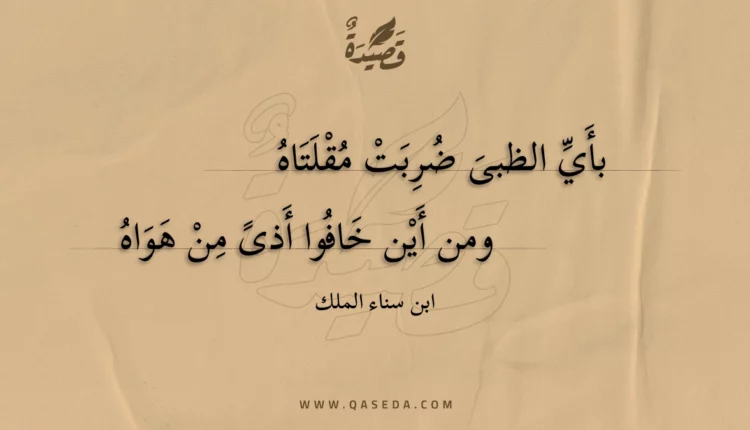 قَصِيْدَةٌ
بأَيِّ الظبىَ ضُرِبَتْ مُقْلَتَاهُ
ومن أَيْن خَافُوا أَذىً مِنْ هَوَاهُ
ابن سناء الملك
WWW.QASEDA.COM